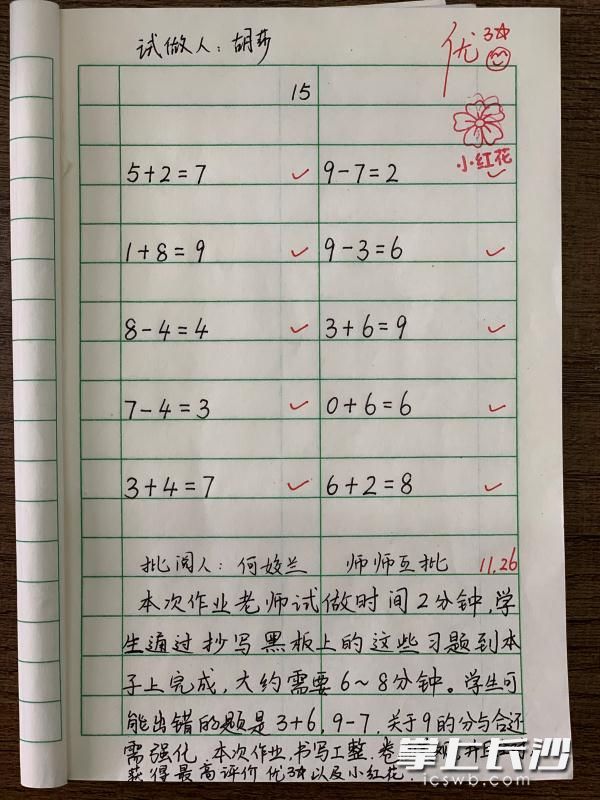 试做人：胡莎
优 3☆
15
小红花
5+2=7 ✓ 9-7=2 ✓
1+8=9 ✓ 9-3=6 ✓
8-4=4 ✓ 3+6=9 ✓
7-4=3 ✓ 0+6=6 ✓
3+4=7 ✓ 6+2=8 ✓
批阅人：何姣兰 师师互批 11.26
本次作业老师试做时间2分钟,学
生通过抄写黑板上的这些习题到本
子上完成,大约需要6～8分钟。学生可
能出错的题是3+6,9-7,关于9的分与合还
需强化。本次作业,书写工整,卷
获得最高评价优3☆以及小红花.
掌上长沙
icswb.com